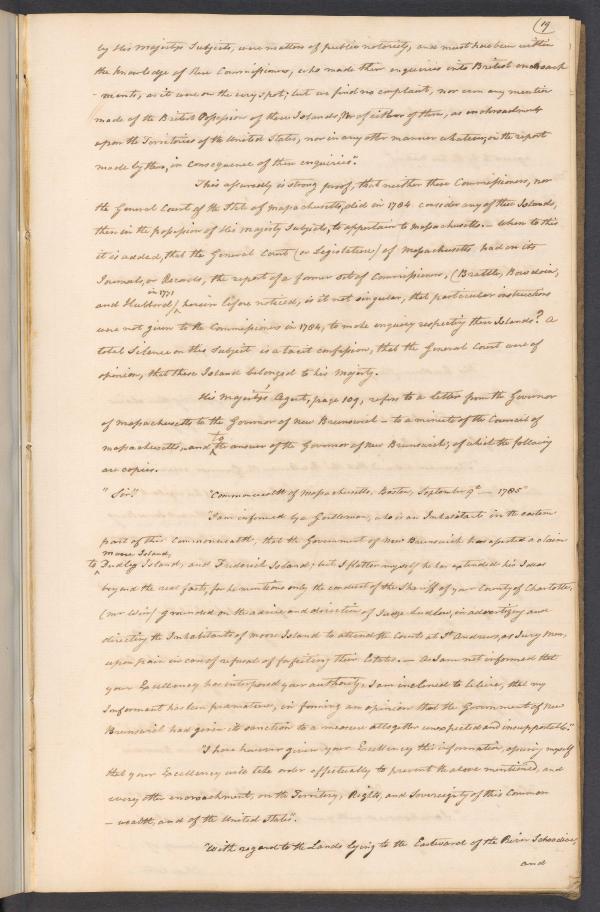 19
by His Majestys Subjects, were matters of public notoriety, and must have been within
the knowledge of these Commissioners, who made their enquiries into British encroach
-ments, as it were on the very spot; but we find no complaint, nor even any mention
made of the British Possession of these Islands, or of either of them, as encroachments
upon the Territories of the United States, nor in any other manner whatever, in the report
made by them, in consequence of their enquiries".
This assuredly is strong proof, that neither these Commissioners, nor
the General Court of the State of Massachusetts, did in 1784 consider any of these Islands,
then in the possession of His Majesty Subjects, to appertain to Massachusetts. – When to this
it is added, that the General Court (or Legislature) of Massachusetts had on its
Journals, or Records, the report of a former set of Commissioners, (Brattle, Bowdoin,
in 1771
and Hubbard) herein before noticed, is it not singular, that particular instructions
were not given to the Commissioners in 1784, to make enquiry respecting these Islands? A
total Silence on this Subject is a tacit confession, that the General Court were of
opinion, that these Island belonged to his Majesty.
His Majesty's Agent, page 109, refers to a letter from the Governor
of Massachusetts to the Governor of New Brunswick – to a minute of the Council of
to
Massachusetts, and the answer of the Governor of New Brunswick; of which the following
are copies.
" Sir" "Commonwealth of Massachusetts, Boston, September 9th – 1785"
"I am informed by a Gentleman, who is an Inhabitant in the eastern
part of this Commonwealth, that the Government of New Brunswick has asserted a claim
Moose Island,
to Dudley Island, and Frederick Island; but I flatter myself he has extended his Ideas
beyond the real facts, for he mentions only the conduct of the Sheriff of your County of Charlotte,
(Mr Wier) grounded on the advice and direction of Judge Ludlow, in advertizing and
directing the Inhabitants of Moose Island to attend the Courts at St Andrews, as Jury Men,
upon pain in case of refusal of forfeiting their Estates. – As I am not informed that
your Excellency has interposed your authority, I am inclined to believe, that my
Informant has been premature, in forming an opinion that the Government of New
Brunswick has given its sanction to a measure altogether unexpected and insupportable."
"I have however given your Excellency this information, assuring myself
that your Excellency will take order effectually to prevent the above mentioned, and
every other encroachment, on the Territory, Rights, and Sovereignty of this Common
– wealth, and of the United States".
"With regard to the Lands lying to the Eastward of the River Schoodiac,
and